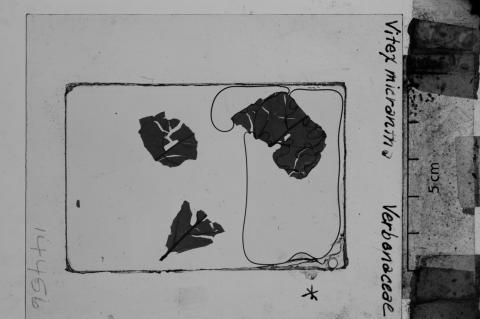 Vitex micrantha Verbenaceae
5cm
14456
*